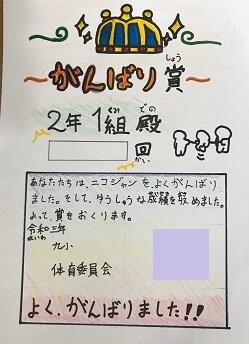 しょう
～がんばり賞～
くみ での
2年1組殿
回
かい
あなたたちは、ニコジャンを、よくがんばり
ました。そして、ゆうしゅうな成績を収めました。
よって、賞をおくります。
令和三年
れいわ
九小
体育委員会
よく、がんばりました!!